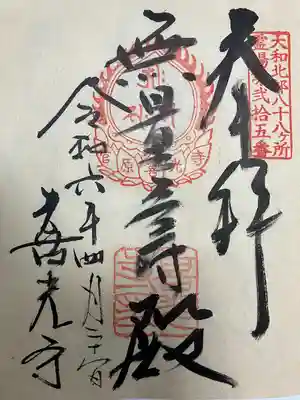 大和北部八十八ヶ所
霊場第弐拾五番
奉拝
無量壽殿
菅原喜光寺
令和六年四月日
喜光寺